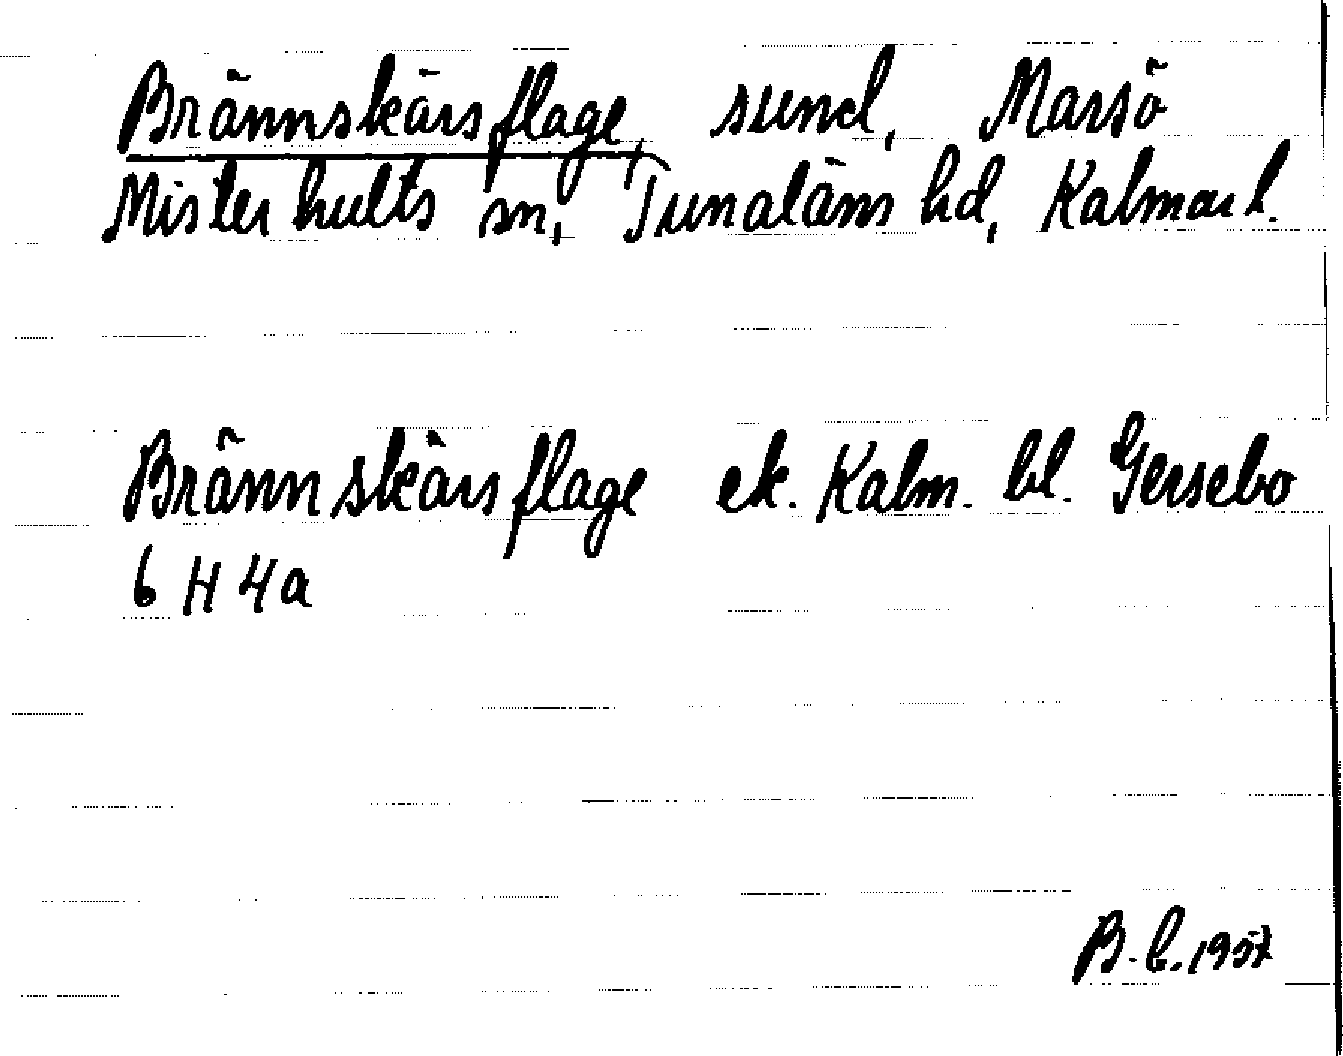 Brännskärsflage, sund, Marsö
Misterhults sn, Tunaläns hd, Kalmar l.
Brännskärsflage ek. Kalm. bl. Gersebo
6 H 4a
B. L. 1957